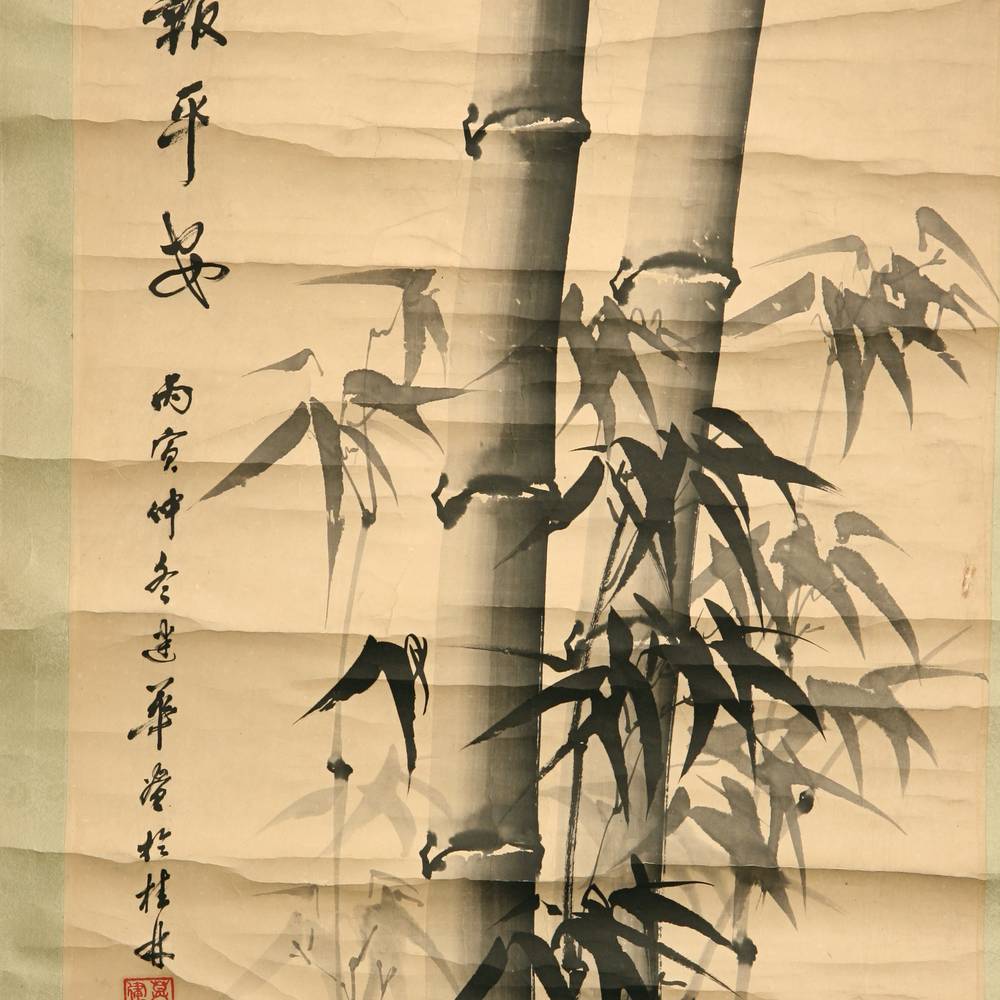 報平安
丙寅仲冬建華瑩於桂林